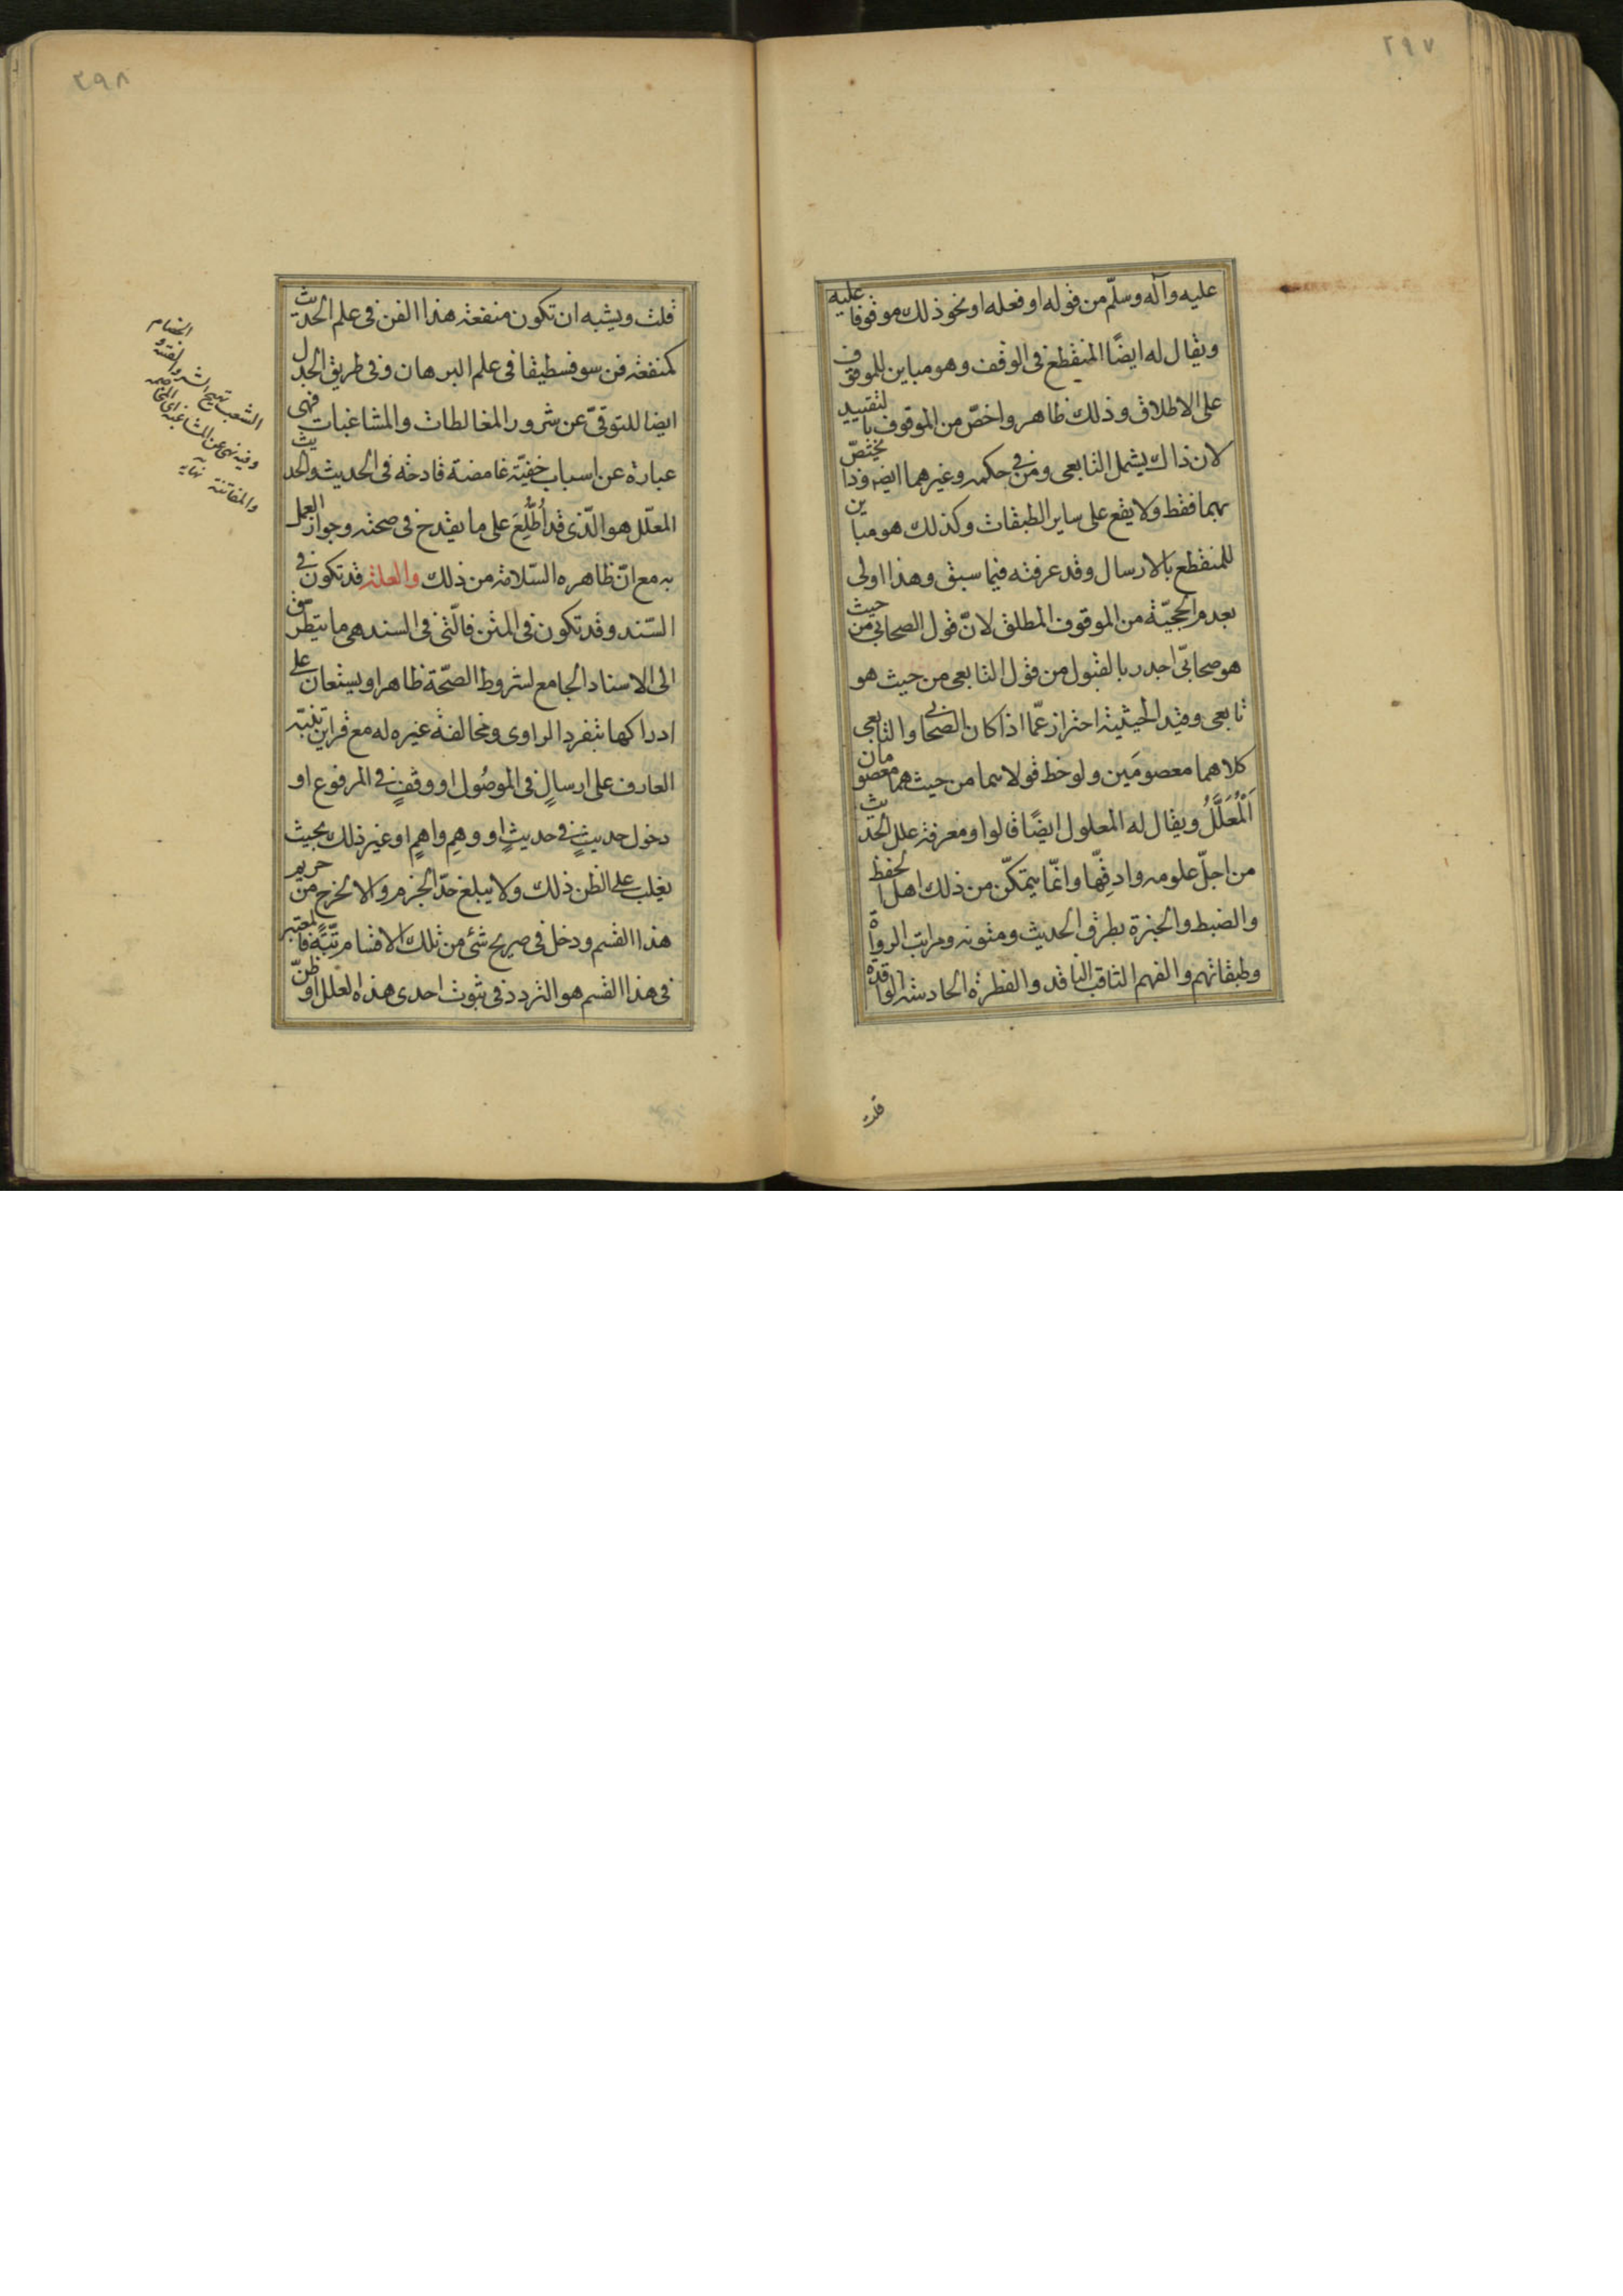 ٢٩٧
عليه وآله وسلّم من قوله او فعله او نحو ذلك موقوفا عليه
ويقال له ايضًا المنقطع فى الوقف وهو مباين للموقوف
على الاطلاق وذلك ظاهر واخصّ من الموقوف بالتقييد
لان ذاك يشمل التابعى ومن فى حكمه وغيرهما ايضا وذا يختصّ
بهما فقط ولا يقع على ساير الطبقات وكذلك هو مباين
للمنقطع بالارسال وقد عرفته فيما سبق وهذا اولى
بعدم الحجيّة من الموقوف المطلق لانّ قول الصحابى من حيث
هو صحابىّ اجدر بالقبول من قول التابعى من حيث هو
تابعى وقيد الحيثية احتراز عمّا اذا كان الصحابى والتابعى
كلاهما معصومَين ولوحظ قولاهما من حيث هما معصومان
اَلْمُعَلَّلُ ويقال له المعلول ايضًا قالوا ومعرفة علل الحديث
من اجلّ علومه وادقّها وانّما يتمكّن من ذلك اهل الحفظ
والضبط والخبرة بطرق الحديث ومتونه ومراتب الرواة
وطبقاتهم والفهم الثاقب الناقد والفطرة الحادسة الواقدة
قلت
٢٩٨
قلت ويشبه ان تكون منفعة هذا الفن فى علم الحديث
كمنفعة فن سوفسطيقا فى علم البرهان وفى طريق الجدل
ايضا للتوقىّ عن شرور المغالطات والمشاغبات فهى
عبارة عن اسباب خفيّة غامضة قادحة فى الحديث والحديث
المعلّل هو الّذى قد اُطُّلِعَ على ما يقدح فى صحته وجواز العمل
به مع انّ ظاهره السّلامة من ذلك والعلة قد تكون فى
السّند وقد تكون فى المتن فالّتى فى السند هى ما يتطرّق
الى الاسناد الجامع لشروط الصّحّة ظاهرا ويستعان على
ادراكها بتفرد الراوى ومخالفة غيره له مع قراين تنبّه
العارف على ارسالٍ فى الموصُول او وقفٍ فى المرفوع او
دخول حديثٍ فى حديثٍ او وهمِ واهمٍ او غير ذلك بحيث
يغلب على الظن ذلك ولا يبلغ حدّ الجزم والا لخرج من حريم
هذا القسم ودخل فى صريح شئ من تلك الاقسام مرتّبةً فالمعتبر
فى هذا القسم هو التردد فى ثبوت احدى هذه العلل او ظنّ
الشغب تهيج الشر والفتنة و الخصام
وفيه نهى عن المشاغبة اى المخاصمة
والمفاتنة نهايه